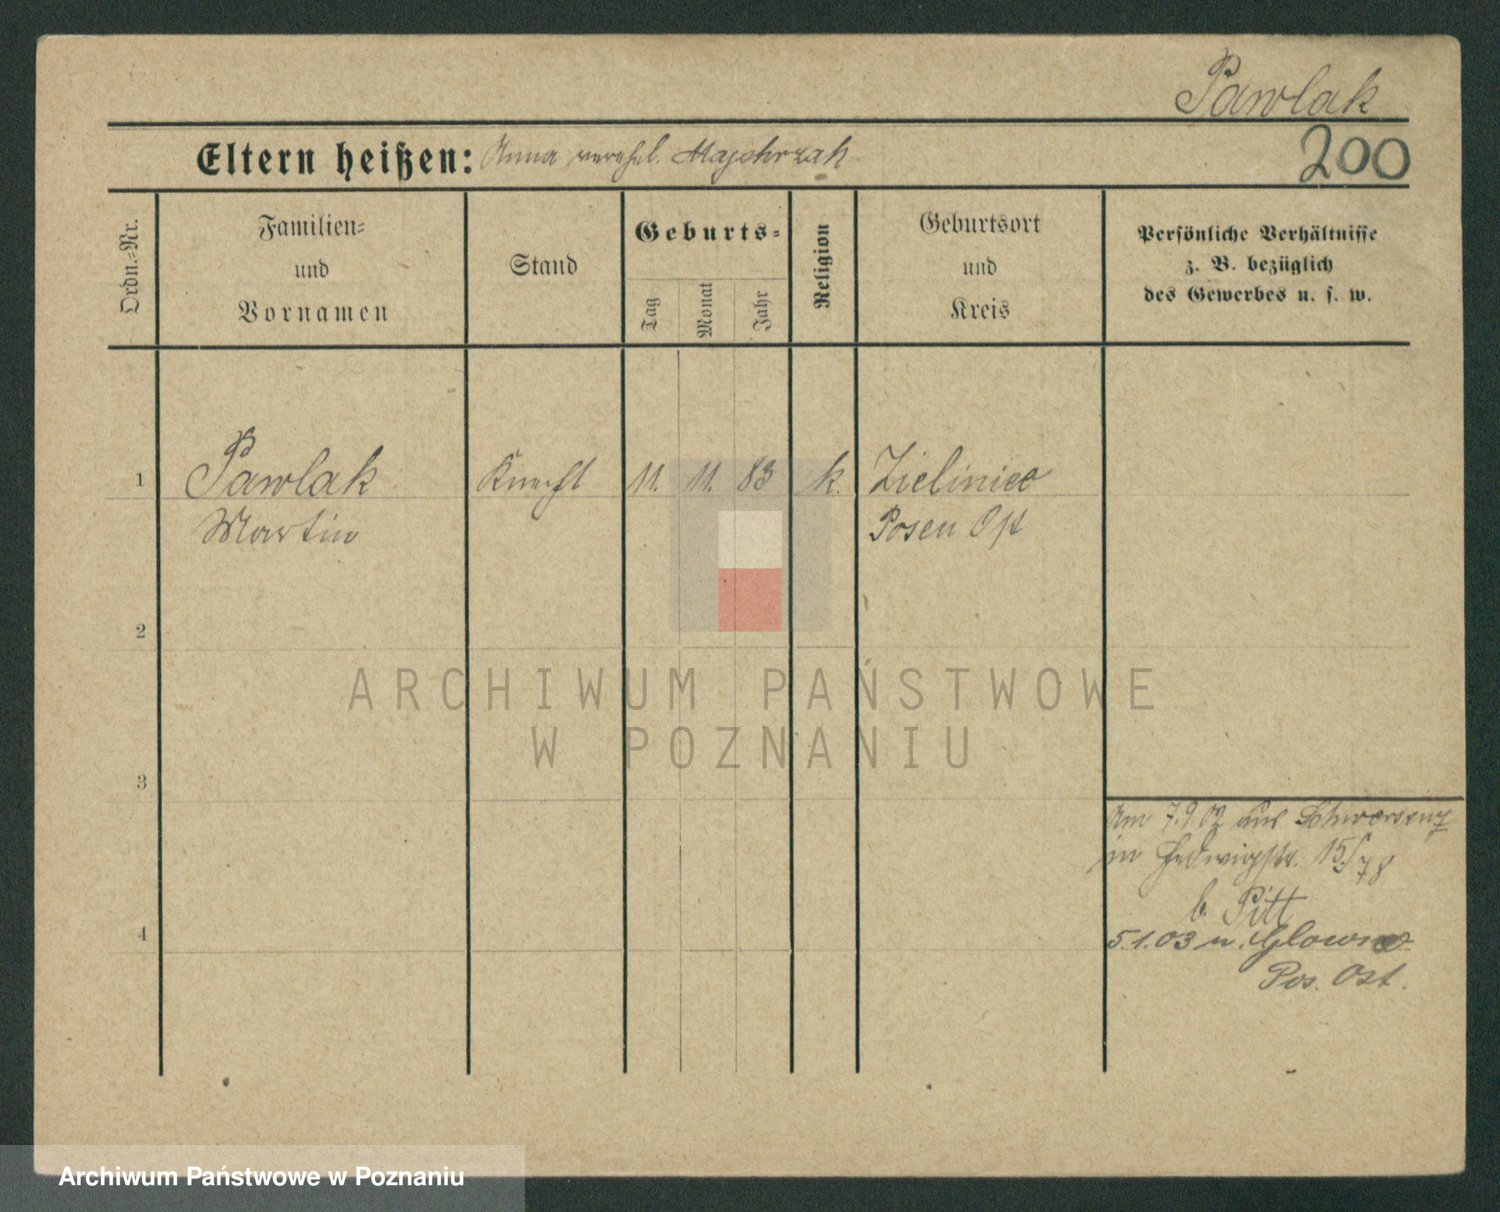 Pawlak
200
Eltern heißen: Anna verehel. Majchrzak
Ordn.-Nr.
Familien-
und
Vornamen
Stand
Geburts-
Tag
Monat
Jahr
Religion
Geburtsort
und
Kreis
Persönliche Verhältnisse
z. B. bezüglich
des Gewerbes u. s. w.
1 Pawlak Knecht 11. 11. 83 k. Zieliniec
Martin Posen Ost
2
3
4
Am 7.9.02 aus Schwersenz
in Hedwigstr. 15/78
b. Pitt
5.1.03 n. Glowno
Pos. Ost.
ARCHIWUM PAŃSTWOWE
W POZNANIU
Archiwum Państwowe w Poznaniu